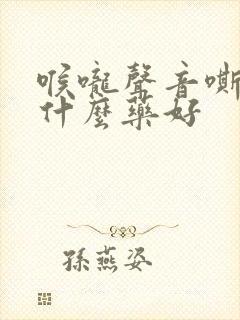 喉嚨聲音嘶
什麼藥好
孫燕姿